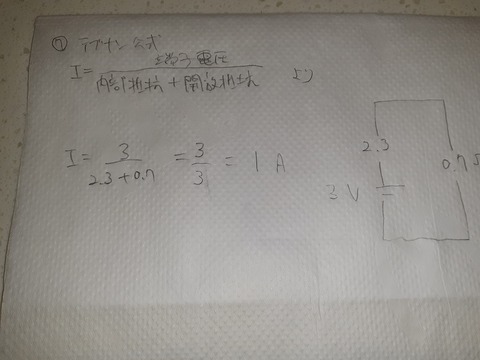 ⑦ テブナン公式
I = 端子電圧 / 内部抵抗 + 開放抵抗 より
I = 3 / 2.3 + 0.7 = 3 / 3 = 1 A
2.3
0.7Ω
3 V